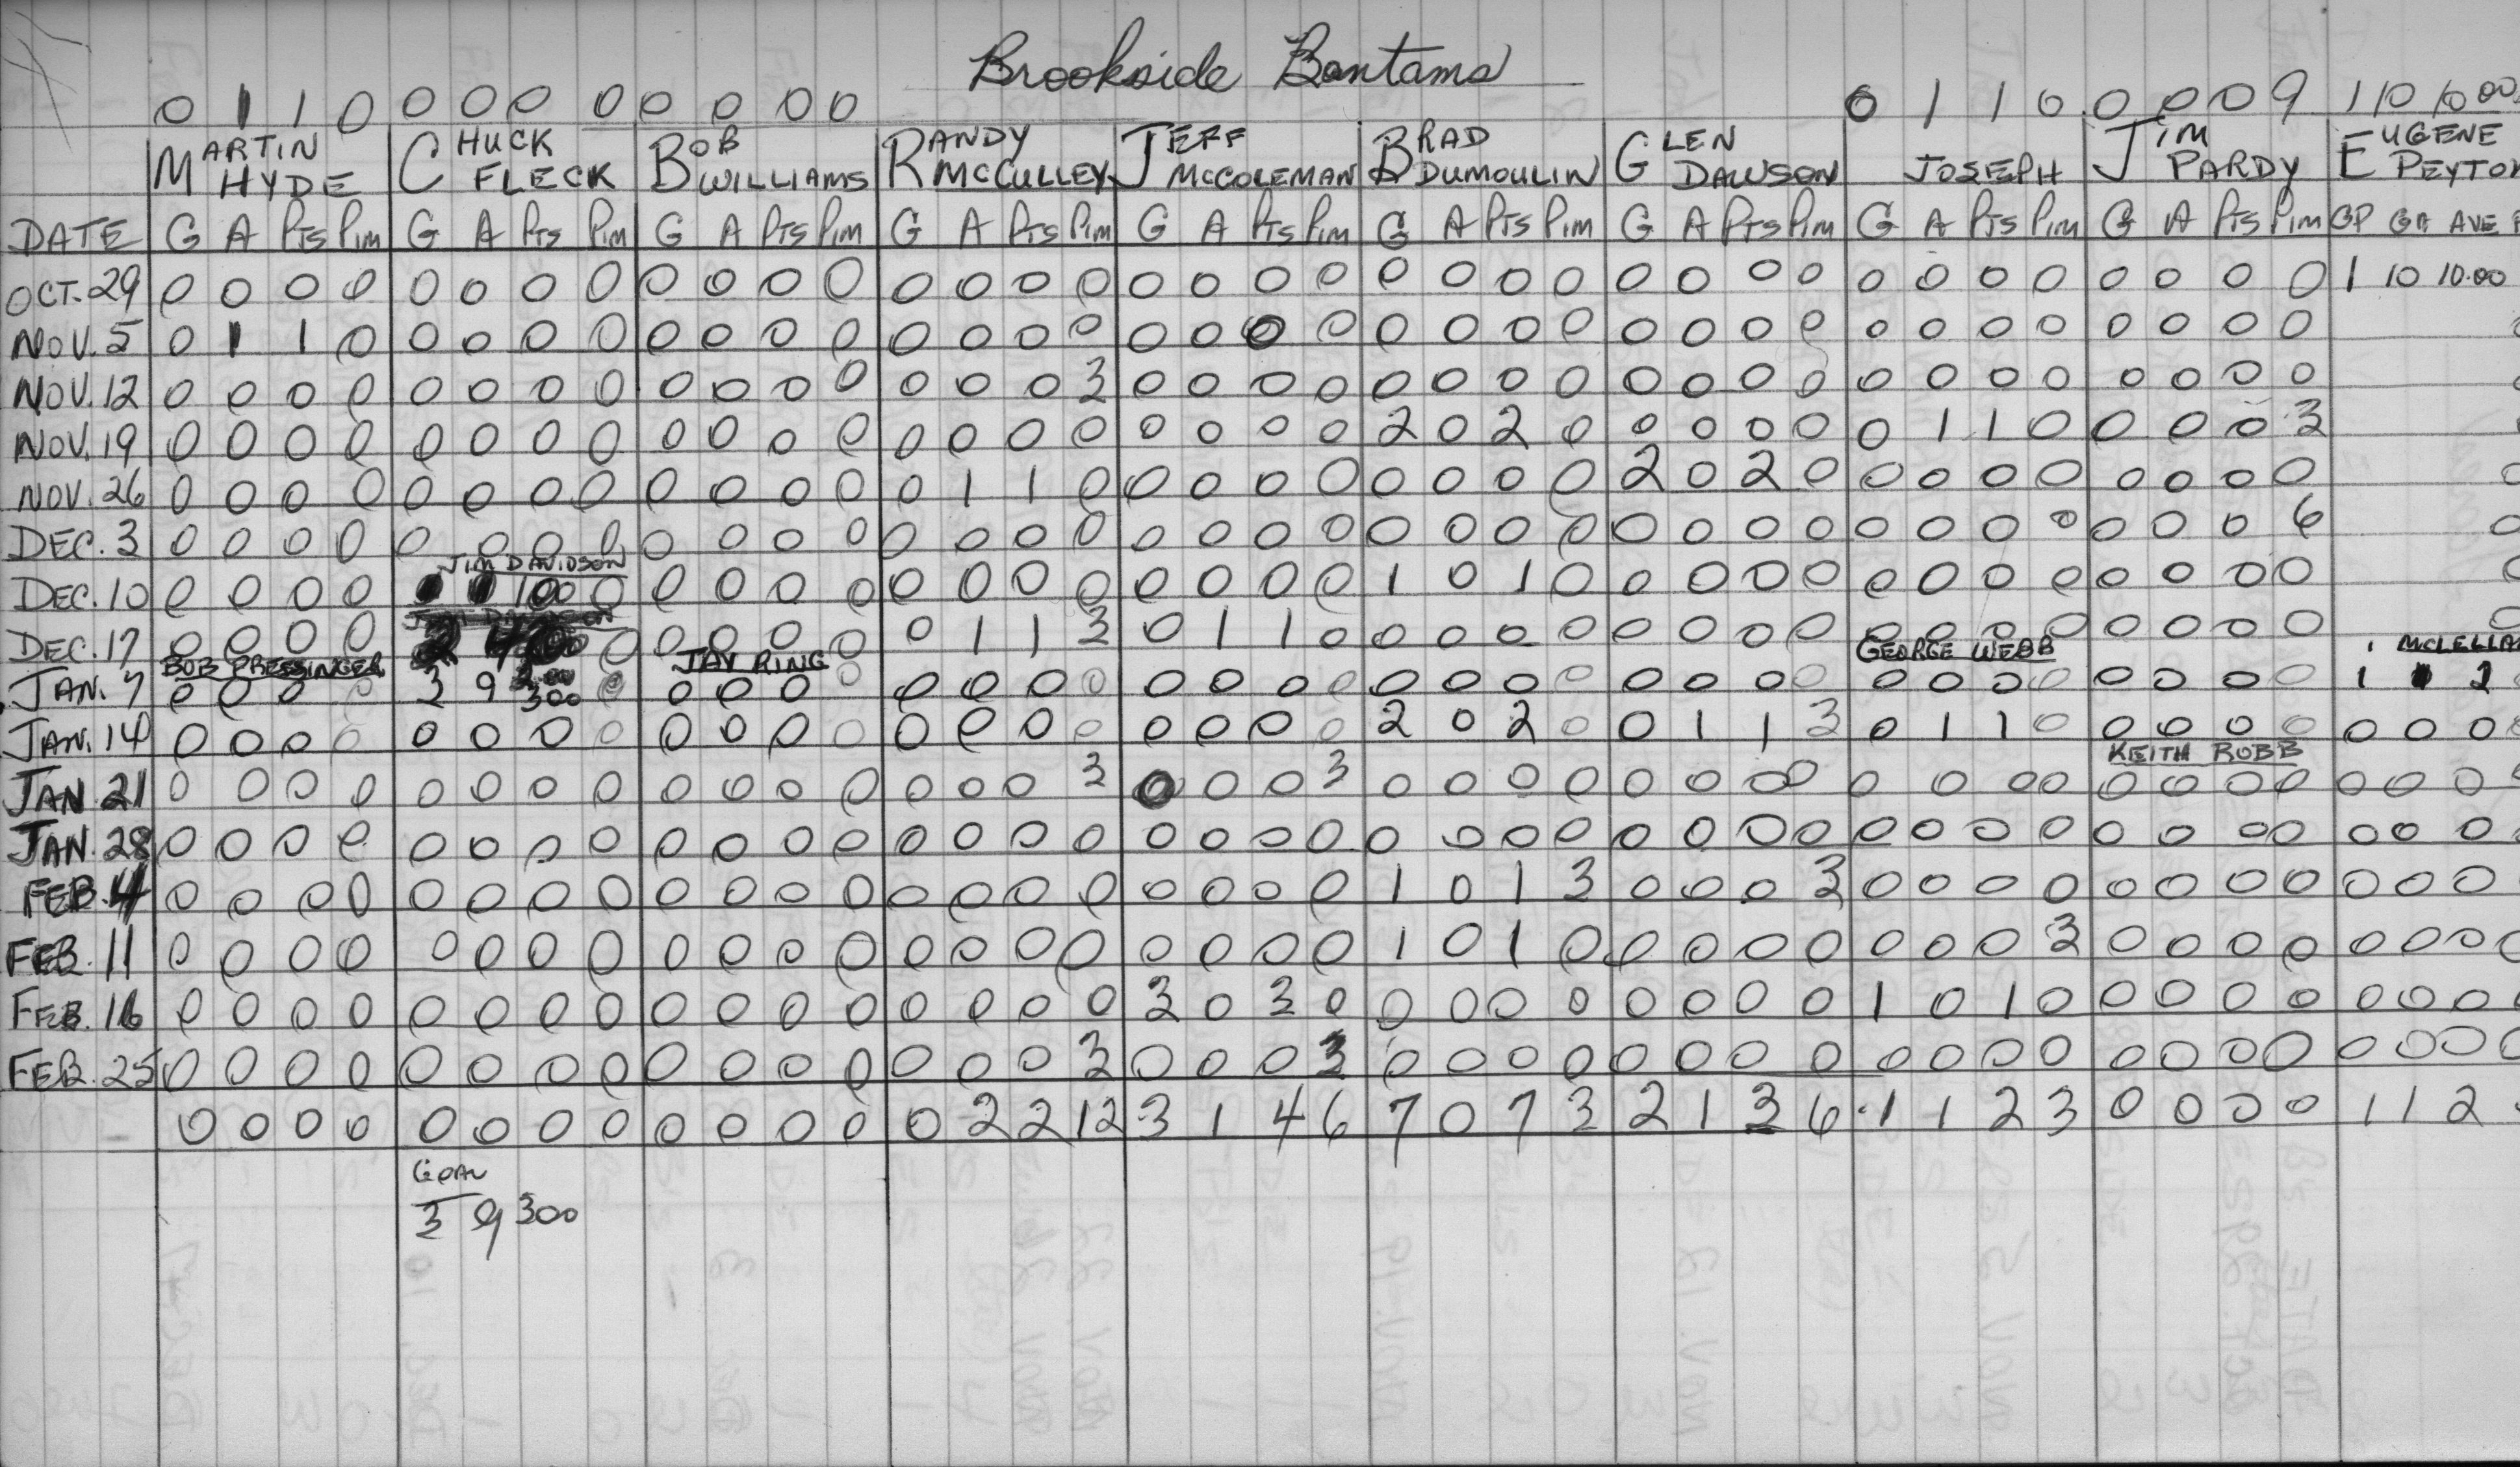 Brookside Bantams
0 1 1 0 0 0 0 0 0 0 0 0 0 1 1 0 0 0 0 9 1 10 10.00
MARTIN HYDE CHUCK FLECK BOB WILLIAMS RANDY MCCULLEY JEFF MCCOLEMAN BRAD DUMOULIN GLEN DAWSON JOSEPH JIM PARDY EUGENE PEYTON
DATE G A Pts Pim G A Pts Pim G A Pts Pim G A Pts Pim G A Pts Pim G A Pts Pim G A Pts Pim G A Pts Pim G A Pts Pim GP GA AVE
OCT. 29 0 0 0 0 0 0 0 0 0 0 0 0 0 0 0 0 0 0 0 0 0 0 0 0 0 0 0 0 0 0 0 0 0 0 0 0 1 10 10.00
NOV. 5 0 1 1 0 0 0 0 0 0 0 0 0 0 0 0 0 0 0 0 0 0 0 0 0 0 0 0 0 0 0 0 0 0 0 0 0
NOV. 12 0 0 0 0 0 0 0 0 0 0 0 0 0 0 0 3 0 0 0 0 0 0 0 0 0 0 0 0 0 0 0 0 0 0 0 0
NOV. 19 0 0 0 0 0 0 0 0 0 0 0 0 0 0 0 0 0 0 0 0 2 0 2 0 0 0 0 0 0 1 1 0 0 0 0 3
NOV. 26 0 0 0 0 0 0 0 0 0 0 0 0 0 1 1 0 0 0 0 0 0 0 0 0 2 0 2 0 0 0 0 0 0 0 0 0
DEC. 3 0 0 0 0 0 0 0 0 0 0 0 0 0 0 0 0 0 0 0 0 0 0 0 0 0 0 0 0 0 0 0 0 0 0 0 6
JIM DAVIDSON
DEC. 10 0 0 0 0 0 0 0 0 0 0 0 0 0 0 0 0 0 1 0 1 0 0 0 0 0 0 0 0 0 0 0 0 0
DEC. 17 0 0 0 0 0 0 0 0 0 0 1 1 3 0 1 1 0 0 0 0 0 0 0 0 0 0 0 0 0 0 0 0 0
BOB PRESSINGER JAY RING GEORGE WEBB MCLELLA
JAN. 7 0 0 0 0 3 9 300 0 0 0 0 0 0 0 0 0 0 0 0 0 0 0 0 0 0 0 0 0 0 0 0 0 0 0 0 0 1 2
JAN. 14 0 0 0 0 0 0 0 0 0 0 0 0 0 0 0 0 0 0 0 0 2 0 2 0 0 1 1 3 0 1 1 0 0 0 0 0 0 0 0
KEITH ROBB
JAN 21 0 0 0 0 0 0 0 0 0 0 0 0 0 0 0 3 0 0 0 3 0 0 0 0 0 0 0 0 0 0 0 0 0 0 0 0 0 0 0
JAN. 28 0 0 0 0 0 0 0 0 0 0 0 0 0 0 0 0 0 0 0 0 0 0 0 0 0 0 0 0 0 0 0 0 0 0 0 0 0 0 0
FEB. 4 0 0 0 0 0 0 0 0 0 0 0 0 0 0 0 0 0 0 0 0 1 0 1 3 0 0 0 3 0 0 0 0 0 0 0 0 0 0 0
FEB. 11 0 0 0 0 0 0 0 0 0 0 0 0 0 0 0 0 0 0 0 0 1 0 1 0 0 0 0 0 0 0 0 3 0 0 0 0 0 0 0 0
FEB. 16 0 0 0 0 0 0 0 0 0 0 0 0 0 0 0 0 3 0 3 0 0 0 0 0 0 0 0 0 1 0 1 0 0 0 0 0 0 0 0
FEB. 25 0 0 0 0 0 0 0 0 0 0 0 0 0 0 0 3 0 0 0 3 0 0 0 0 0 0 0 0 0 0 0 0 0 0 0 0 0 0 0 0
0 0 0 0 0 0 0 0 0 0 0 0 0 2 2 12 3 1 4 6 7 0 7 3 2 1 3 6 1 1 2 3 0 0 0 0 1 1 2
GOAL
3 9 300